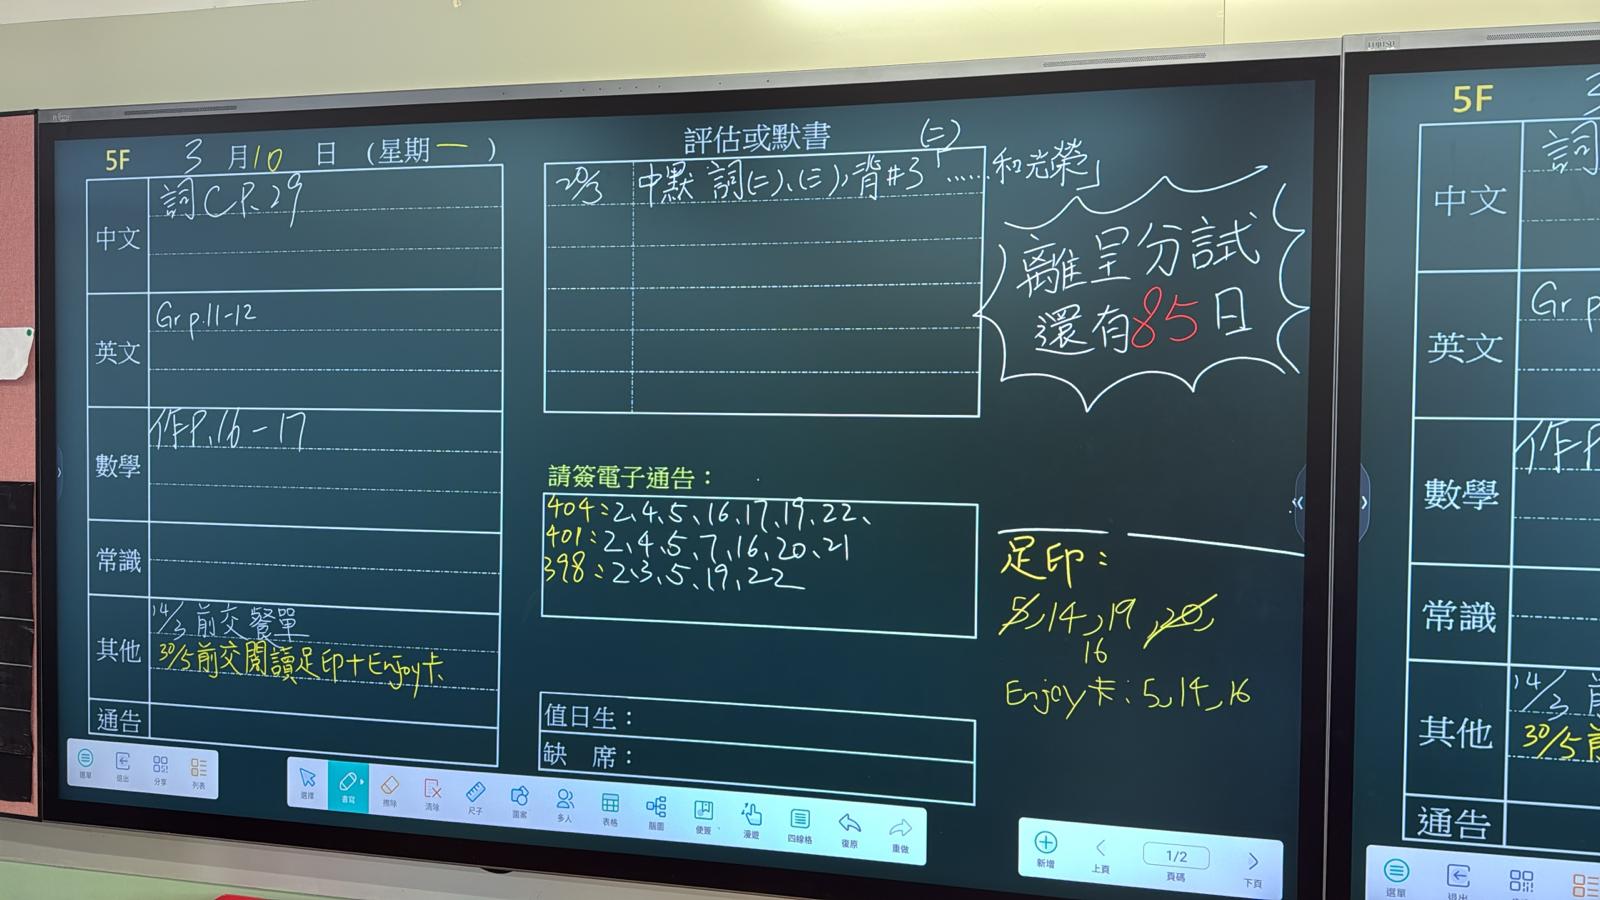 5F 3月10日(星期一)
中文 詞C P.29
英文 Gr p.11-12
數學 作P.16-17
常識
其他 14/3前交餐單
30/5前交閱讀足印+Enjoy卡
通告
評估或默書
20/3 中默 詞(二)、(三),背#3「……和光榮」
(二)
離呈分試
還有85日
請簽電子通告:
404:2、4、5、16、17、19、22、
401:2、4、5、7、16、20、21
398:2、3、5、19、22
值日生:
缺 席:
足印:
5,14,19,20,
16
Enjoy卡:5,14,16
選單 退出 分享 列表
選擇 書寫 擦除 清除 尺子 圖案 多人 表格 腦圖 便簽 漫遊 四線格 復原 重做
新增 上頁 1/2 頁碼 下頁
FUJITSU
5F
中文 詞
英文 Gr p
數學 作P
常識
其他 14/3前
30/5前
通告
選單 退出